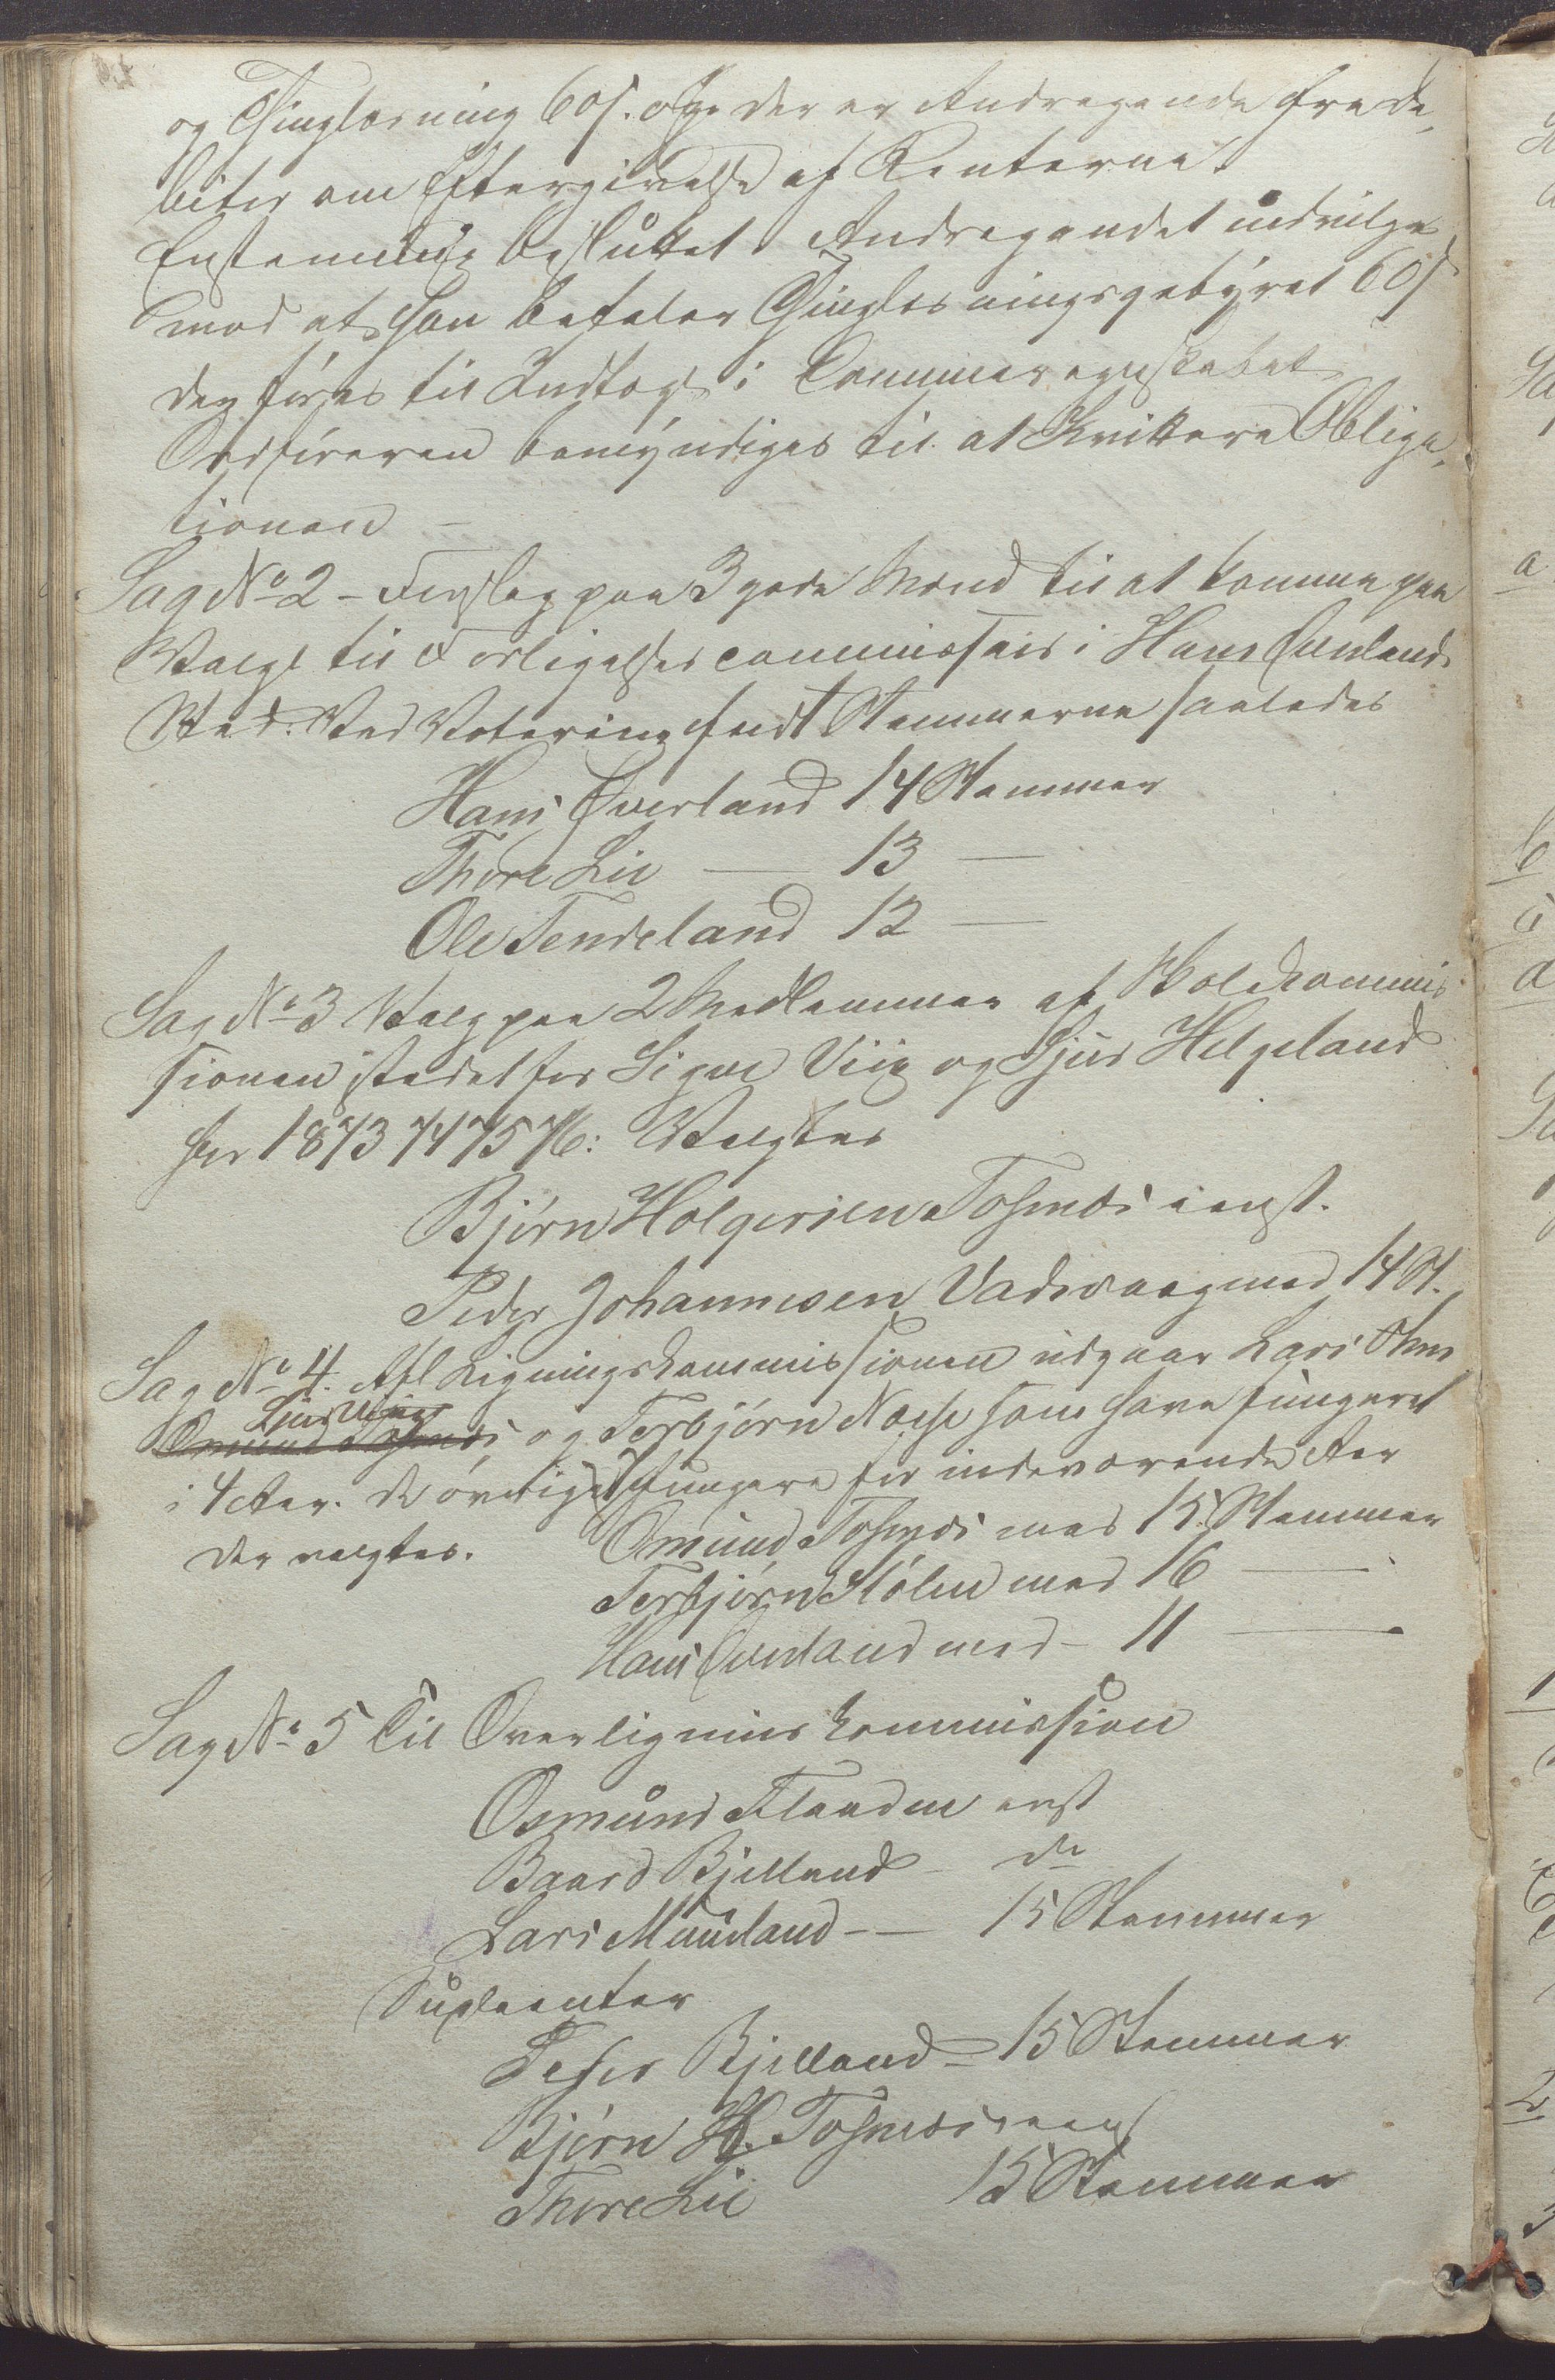 og Thinglæsning 60 s. ofr. der er Andragende fra De-
bitor om Eftergivelse af Renterne.
Enstemmig besluttet. Andragendet indvilges
mod at han betaler Thinglæsningsgebyret 60 s
der føres til Indtægt i Communeregnskabet
Ordføreren bemyndiges til at Kvittere Obliga-
tionen –
Sag No 2 – Forslag paa 3 gode Mænd til at komme paa
Valg til Forligelsescommissair i Hans Øverlands
Sted. Ved Votering faldt Stemmerne saaledes
Hans Øverland 14 Stemmer
Thore Lie — 13 —
Ole Tendeland 12 —
Sag No 3 Valg paa 2 Medlemmer af Skolekommis
sionen istedetfor Sigve Viig og Sjur Helgeland
for 1873 74 75 76: Valgtes
Bjørn Holgersen Tøsnæs eenst.
Peder Johannesen Vadsvaag med 14 St.
Sag No 4. Af Ligningskommissionen udgaar Lars
Sjur Viig
Omund Tøsnæs og Torbjørn Næse som have fungeret
i 4 Aar. De øvrige fungere for indeværende Aar
Der valgtes. Omund Tøsnæs med 15 Stemmer
Torbjørn Stølen med 16 —
Hans Øverland med – 11 —
Sag No 5 Til Overlignins kommission
Osmund Flaaden enst
Baard Bjelland – do
Lars Muuland – — 15 Stemmer
Supleanter
Peder Bjelland – 15 Stemmer
Bjørn H. Tøsnæs eenst
Thore Lie 15 Stemmer